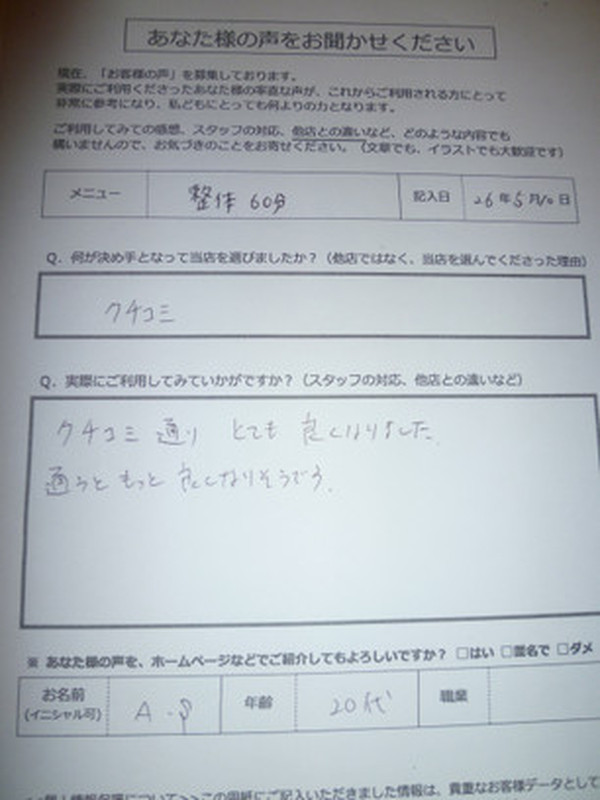 あなた様の声をお聞かせください
現在、「お客様の声」を募集しております。
実際にご利用くださったあなた様の率直な声が、これからご利用される方にとって
非常に参考になり、私どもにとっても何よりの力となります。
ご利用してみての感想、スタッフの対応、他店との違いなど、どのような内容でも
構いませんので、お気づきのことをお寄せください。（文章でも、イラストでも大歓迎です）
メニュー 整体 60分 記入日 26年5月10日
Q. 何が決め手となって当店を選びましたか？（他店ではなく、当店を選んでくださった理由）
クチコミ
Q. 実際にご利用してみていかがですか？（スタッフの対応、他店との違いなど）
クチコミ通り とても 良くなりました。
通うともっと良くなりそうです。
※ あなた様の声を、ホームページなどでご紹介してもよろしいですか？ □はい □匿名で □ダメ
お名前 A . 年齢 20代 職業
(イニシャル可)
この用紙にご記入いただきました情報は、貴重なお客様データとして